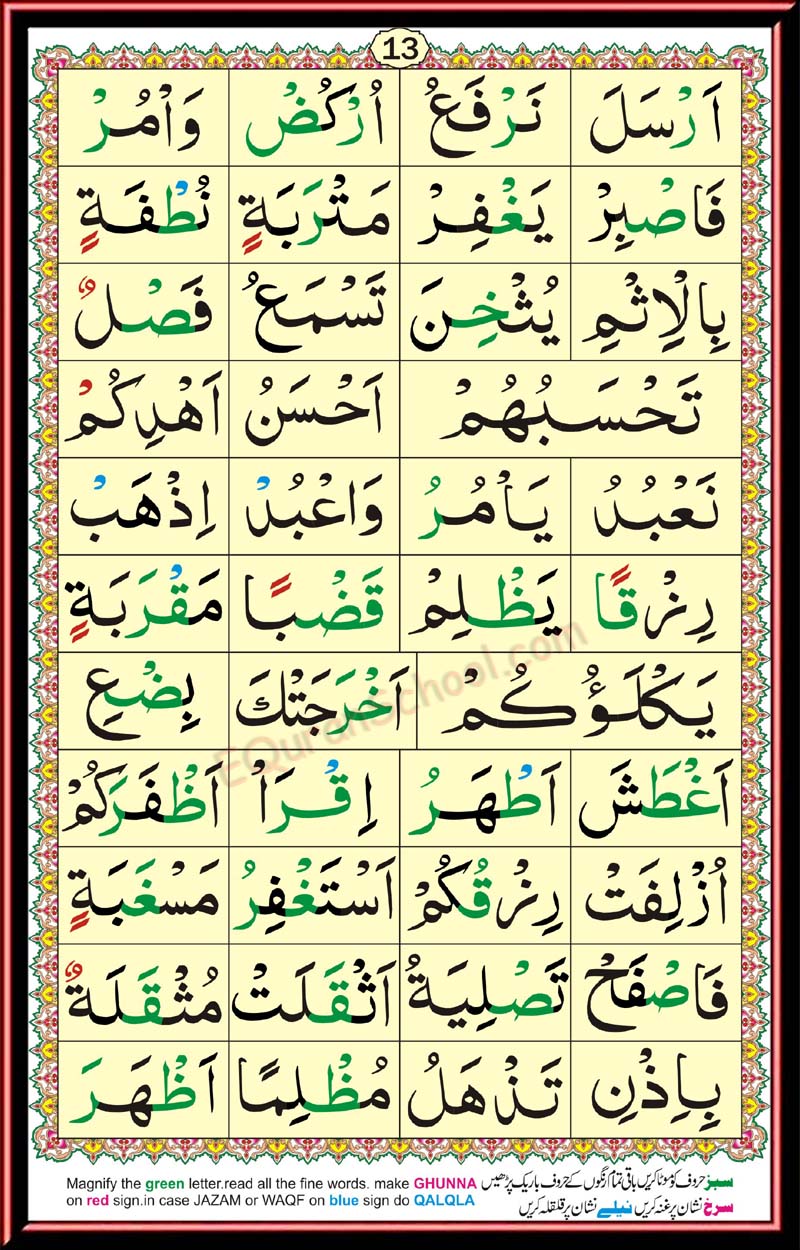 13
اَرْسَلَ نَرْفَعُ اُرْكُضْ وَاْمُرْ
فَاصْبِرْ يَغْفِرْ مَتْرَبَةٍ نُطْفَةٍ
بِالْاِثْمِ يُثْخِنَ تَسْمَعُ فَصْلٌ
تَحْسَبُهُمْ اَحْسَنُ اَهْدِكُمْ
نَعْبُدُ يَاْمُرُ وَاعْبُدْ اِذْهَبْ
رِزْقًا يَظْلِمْ قَضْبًا مَقْرَبَةٍ
يَكْلَؤُكُمْ اَخْرَجَتْكَ بِضْعِ
اَغْطَشَ اَطْهَرُ اِقْرَاْ اَظْفَرَكُمْ
اُزْلِفَتْ رِزْقُكُمْ اَسْتَغْفِرُ مَسْغَبَةٍ
فَاصْفَحْ تَصْلِيَةُ اَثْقَلَتْ مُثْقَلَةٌ
بِاِذْنِ تَذْهَلُ مُظْلِمًا اَظْهَرَ
EQuranSchool.com
Magnify the green letter.read all the fine words. make GHUNNA
on red sign.in case JAZAM or WAQF on blue sign do QALQLA
سبز حروف کو موٹا کریں باقی تمام رنگوں کے حروف باریک پڑھیں
سرخ نشان پر غنہ کریں نیلے نشان پر قلقلہ کریں